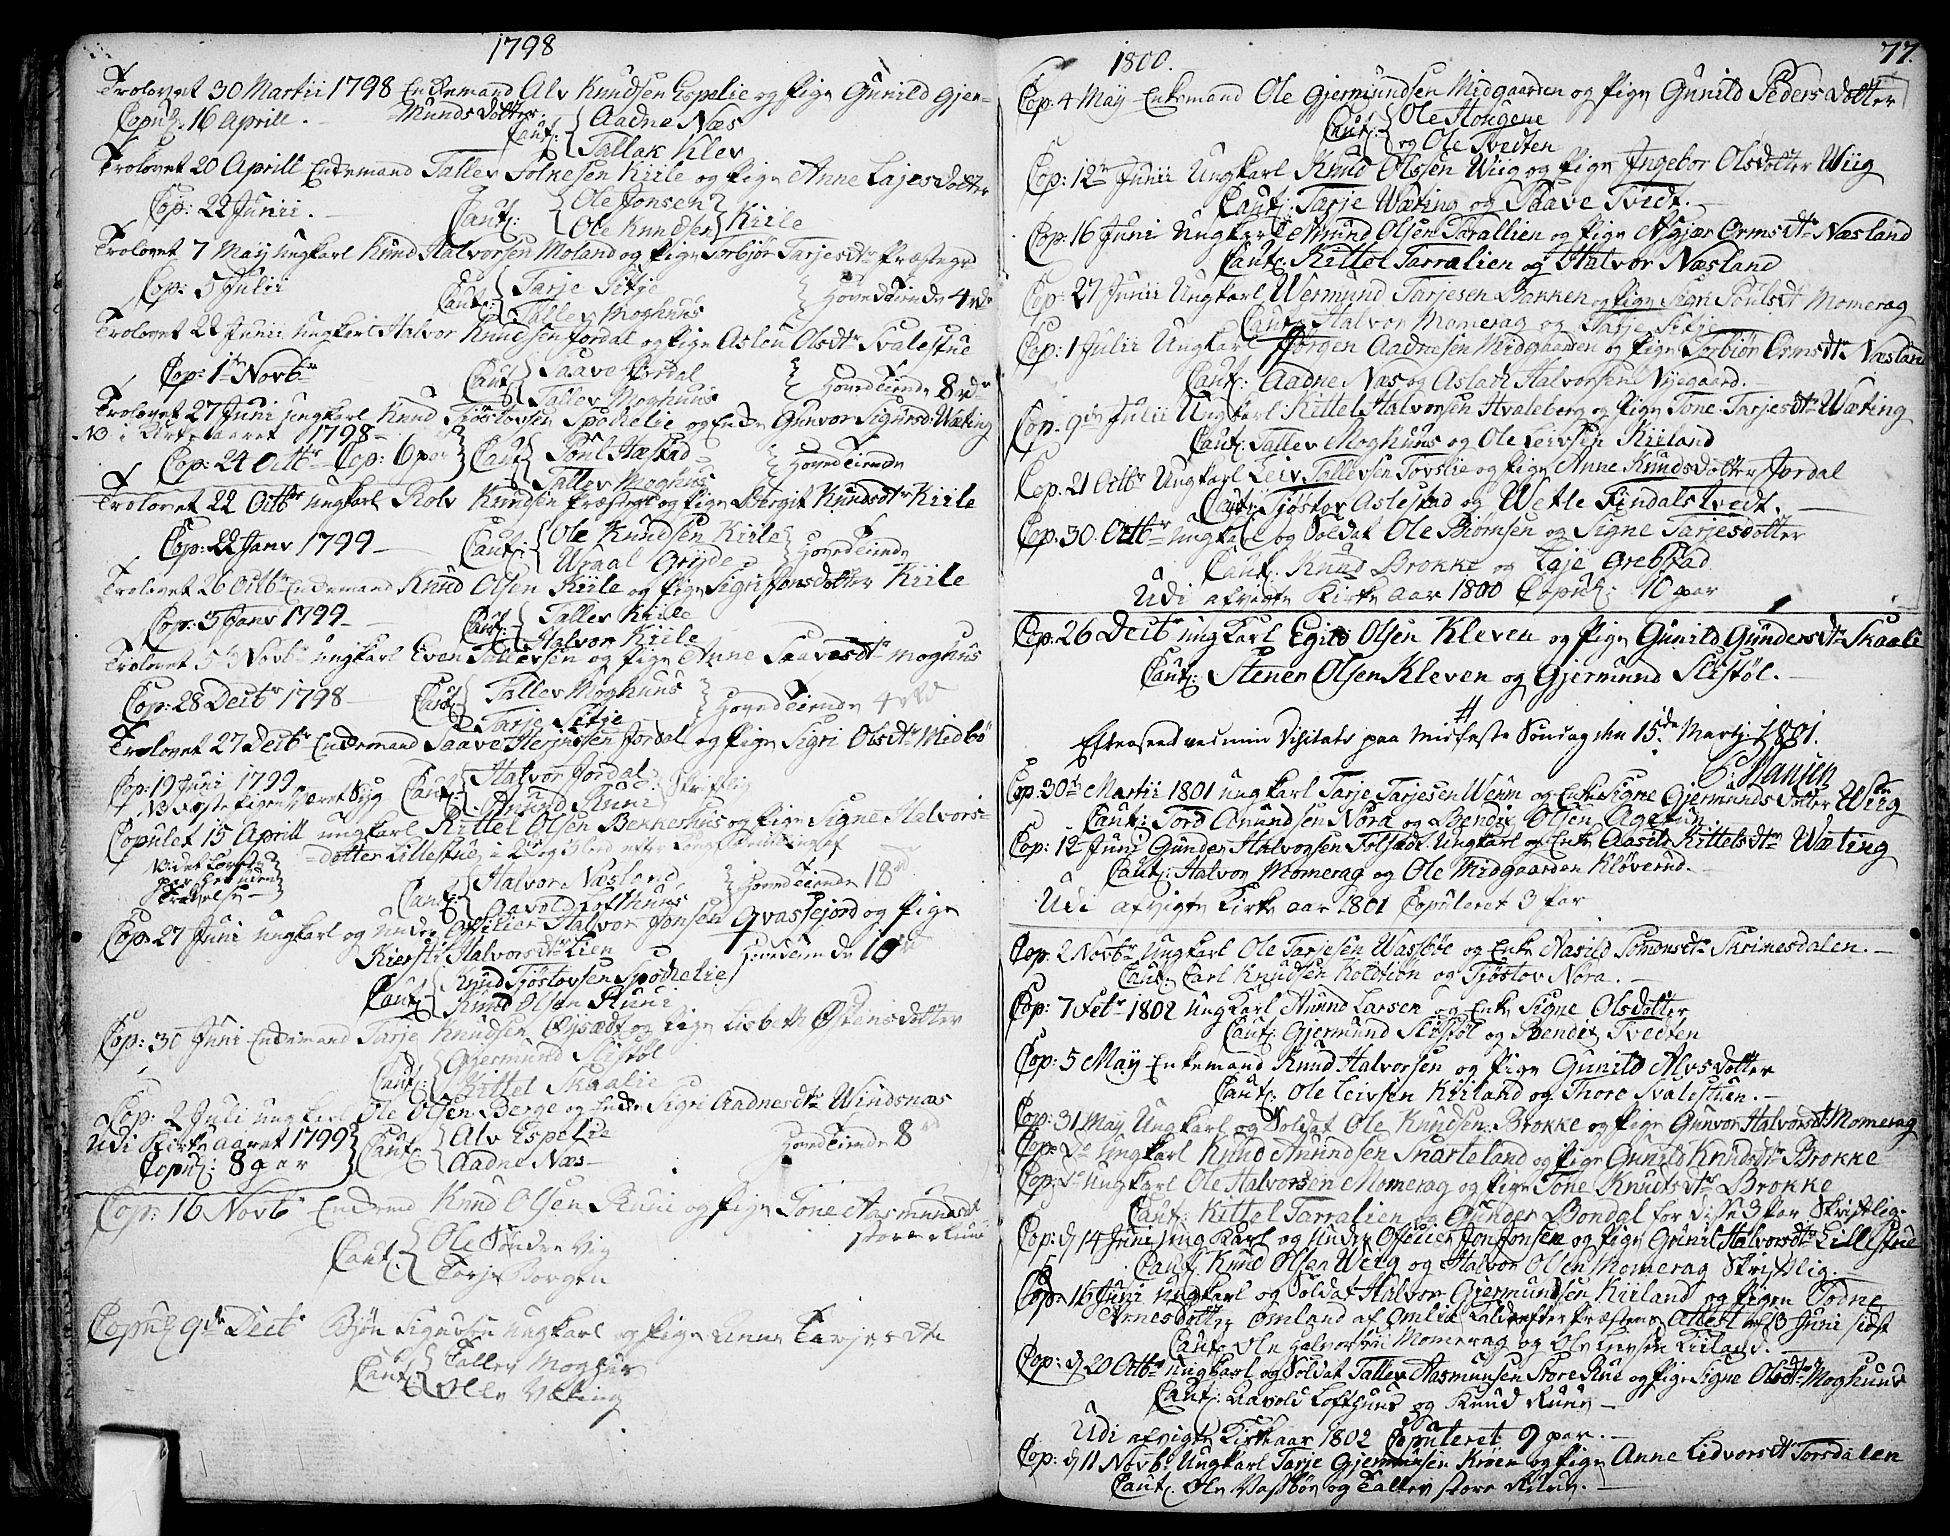 1798
Trolovet 30 Martii 1798 Enkemand Alv Knudsen Espelie og Pige Gunild Gjer-
Copul: 16 Aprill. munds Dotter
Caut: Aadne Næs
Tallak Klev
Trolovet 20 Aprill Enkemand Tallev Kiile og Pige Anne Lajesdotter
Cop: 22 Junii.
Caut: Ole Jonsen
Ole Knudsen Kiile
Trolovet 7 May ungkarl Knud Halvorsen Moland og Pige Torbjør Tarjesdtr Præstegr
Cop: 5 Julii
Caut: Tarje Sitje
Tallev Moghuus
Hovedtiende 4 rd
Trolovet 22 Junii ungkarl Halvor Knudsen Jordal og Pige Aslou Olsdtr Svalestue
Cop: 1 Novbr
Caut: Saave Jordal
Tallev Moghuus
Hovedtiende 8 rdr
Trolovet 27 Juni ungkarl Knud Tjøstovsen Spokelie og Enke Gunvor Sigursd: Wæting
NB i Kirke aaret 1798
Cop: 24 Octbr Cop: 6 par
Caut: Poul Hæstad
Tallev Moghuus
Hovedtiende
Trolovet 22 Octbr ungkarl Rolv Knudsen Præstegr og Pige Bergit Knudsdtr Kiile
Cop: 22 Janv 1799
Caut: Ole Knudsen Kiile
Wraal Gryde
Hovedtiende
Trolovet 26 Octbr Enkemand Knud Olsen Kiile og Pige Sigri Jonsdotter Kiile
Cop: 3 Janv 1799
Caut: Tallev Kiile
Halvor Kiile
Trolovet Novbr ungkarl Even Tallevsen og Pige Anne Saavesdtr Moghus
Cop: 28 Decbr 1798
Caut: Tallev Moghuus
Tarje Sitje
Hovedtiende 4 rd
Trolovet 27 Decbr Enkemand Saave Herjusen Jordal og Pige Sigri Olsdtr Midbø
Cop: 19 Juni 1799
NB Pigen været Syg
Caut: Halvor Jordal
Anund Runi
Skriftlig
Copulet 15 Aprill ungkarl Kittel Olsen Bekkeshus og Pige Signe Halvors-
dotter Lillestue i 2
Caut: Halvor Næsland
Aavold Lofthuus
Hovedtiende 18 rd
Cop: 27 Juni ungkarl og under Officier Halvor Jonsen Qvassfjord og Pige
Kiersti Halvorsdtr Lien
Hovedtiende 10 rd
Caut: Knud Tjøstovsen Spokelie
Knud Olsen Runi
Cop: 30 Juni Enkemand Tarje Knudsen Rysædt og Pige Lisbeth Østensdotter
Caut: Gjermund Slistøl
Kittel Skaalie
Cop: 2 Juli ungkarl Ole Olsen Berge og Enke Sigri Aadnesdtr Windsnæs
Udi Kirke aaret 1799
Copul: 8 par
Caut: Alv Espelie
Aadne Næs
Hovedtiende 8 rd
Cop: 16 Novbr Enkemd Knud Olsen Runi og Pige Tone Aasmundsdtr
store Runi
Caut: Ole Søndre Vig
Tarje Borgen
Copul 9de Decbr Bjøn Sigursen ungkarl og Pige Anne Tarjesdtr
Caut: Tallev Moghus
Ole Væting
77.
1800.
Cop: 4 May Enkemand Ole Gjermundsen Midgaarden og Pige Gunild Peders Dotter
Caut: Ole Hougene
og Ole Tvedten
Cop: 12te Junii Ungkarl Knud Olssen Wiig og Pige Ingebor Olsdotter Wiig
Caut: Tarje Wæting og Saave Tvedt.
Cop: 16 Juni Ungkarl Amund Olsen Torallien og Pige Asgjær Ormsdtr Næsland
Caut: Kittel Tarralien og Halvor Næsland
Cop: 27 Junii Ungkarl Wermund Tarjesen Bakken og Pige Sigri Poulsdt Momerag
Caut: Halvor Momerag og Tarje Sitje
Cop: 1 Julii Ungkarl Jørgen Aadnesen Midgaarden og Pige Torbiør Ormsdtr Næsland
Caut: Aadne Næs og Aslach Halvorsen Nyegaard.
Cop: 9de Julii Ungkarl Kittel Halvorsen Hvaleberg og Pige Tone Tarjesdtr Wæting
Caut: Tallev Moghuus og Ole Leivsen Kiiland
Cop: 21 Octbr Ungkarl Leiv Tallevsen Tovslie og Pige Anne Knudsdotter Jordal
Caut: Tjøstov Aslestad og Wetle Findals Tvedt.
Cop: 30 Octbr ungkarl og Soldat Ole Biørnsen og Signe Tarjesdotter
Caut: Knud Brokke og Taje Orebstad
Udi afvigte Kirke aar 1800 Copul: 10 par
Cop: 26 Decbr ungkarl Egild Olsen Kleven og Pige Gunild Gundersdtr Skaali
Caut: Stener Olsen Kleven og Gjermund Slistøl.
Efterseed ved min Visitats paa Midfaste Søndag den 15de Martj 1801.
P: Hansen
Cop: 30te Martii 1801 ungkarl Tarje Tarjesen Wenn og Enke Signe Gjermunds Dotter Wiig
Caut: Tord Anundsen Nora og Bendix Olsen Agetun
Cop: 12 Juni Gunder Halvorsen Tolsædt Ungkarl og Enke Aasild Kittelsdtr Wæting
Caut: Halvor Momerag og Ole Midgaarden Kløverud.
Udi afvigte Kirke aar 1801 Copuleret 3 Par
Cop: 2 Novbr Ungkarl Ole Tarjesen Wasbøe og Enke Aasild Simonsdtr Skrimesdalen.
Caut: Carl Knudsen Koldtion og Tjøstov Nora.
Cop: 7 Febr 1802 ungkarl Anund Larsen og Enke Signe Olsdotter
Caut: Gjermund Slistøl og Bendix Tvedten
Cop: 5 May Enkemand Knud Halvorsen og Pige Gunild Alvsdotter
Caut: Ole Leivsen Kiiland og Thore Svalestuen.
Cop: 31 May Ungkarl og Soldat Ole Knudsen Brokke og Pige Gunvor Halvorsdt Momerag
Cop: Do Ungkarl Knud Anundsen Snarteland og Pige Gunild Knudsdtr Brokke
Cop: Do Ungkarl Ole Halvorsen Momerag og Pige Tone Knudsdtr Brokke
Caut: Kittel Tarralien og Gunder Bondal for disse 3 Par Skriftlig.
Cop: d 14 Juni ung Karl og Under Officier Jon Jonsen og Pige Gunil Halvorsdtr Lillestue
Caut: Knud Olsen Weig og Halvor Olsen Momerag Skriftlig.
Cop: 16 Juni ungkarl og Soldat Halvor Gjermundsen Kiiland og Pigen Todne
Arnesdotter Omland af Omlid Kald efter Præstens Attest af 13 Juni sidst
Caut: Ole Halvorsen Momerag og Ole Leivsen Kiiland.
Cop: d 20 Octbr ungkarl og Soldat Tallev Aasmunsen Store Rui og Pige Signe Olsdtr Moghuus
Caut: Aavold Lofthuus og Knud Runi
Udi afvigte Kirkeaar 1802 Copuleret 9 par.
Cop: d 11 Novbr Ungkarl Tarje Gjermunsen Krøen og Pige Anne Lidvorsdt Torsdalen
Caut: Ole Vasbøe og Tallev store Runi.